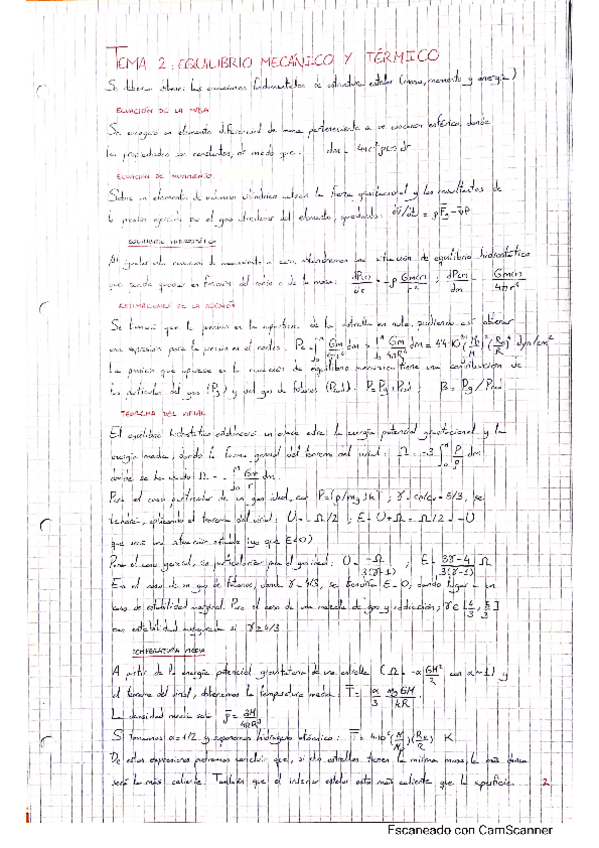 TEMA 2: EQUILIBRIO MECÁNICO Y TÉRMICO
Se deben obtener las ecuaciones fundamentales de estructura estelar (masa, momento y energía)
ECUACIÓN DE LA MASA
Se escogerá un elemento diferencial de masa perteneciente a un cascarón esférico, donde
las propiedades son constantes, de modo que: dm = 4πr²ρ(r)dr
ECUACIÓN DE MOVIMIENTO
Sobre un elemento de volumen cilíndrico actúan la fuerza gravitacional y las resultantes de
la presión ejercida por el gas alrededor del elemento, quedando:
EQUILIBRIO HIDROSTÁTICO
ecuación de movimiento a cero, obtendremos una situación de equilibrio hidrostático
que puede ponerse en función del radio o de la masa: dP(r)/dr = -ρ Gm(r)/r² ; dP(m)/dm = - Gm(r)/4πr⁴
ESTIMACIONES DE LA PRESIÓN
Se tomará que la presión en la superficie de la estrella es nula, pudiendo así obtener
una expresión para la presión en el núcleo:
La presión que aparece en la ecuación de equilibrio hidrostático tiene una contribución de
las partículas del gas (Pg) y del gas de fotones (Prad): P = Pg + Prad ; β = Pg / Prad
TEOREMA DEL VIRIAL
El equilibrio hidrostático establecerá un enlace entre la energía potencial gravitacional y la
energía media, dando la forma general del teorema del virial: Ω = -3 ∫₀ᴹ P/ρ dm
donde se ha usado: Ω = - ∫₀ᴹ Gm/r dm.
Para el caso particular de un gas ideal, con γ = cp/cv = 5/3, se
tendrá, aplicando el teorema del virial: U = -Ω/2 ; E = U+Ω = Ω/2 = -U
que será una situación estable (ya que E<0)
Para el caso general, se particulariza para el gas ideal: U = -Ω/3(γ-1) ; E = 3γ-4/3(γ-1) Ω
En el caso de un gas de fotones, donde γ=4/3, se tendría E=0, dando lugar a un
caso de estabilidad marginal. Para el caso de una mezcla de gas y radiación, γ ∈ [4/3, 5/3]
con estabilidad asegurada si γ ≥ 4/3
TEMPERATURA MEDIA
A partir de la energía potencial gravitatoria de una estrella (Ω = -α GM²/R con α~1) y
el teorema del virial, obtenemos la temperatura media: T̄ = α/3 mgGM/kR.
La densidad media será ρ̄ = 3M/4πR³
Si tomamos α=1/2 y suponemos hidrógeno atómico: T̄ = 4·10⁶ (M/M☉)(R☉/R) K
De estas expresiones podremos concluir que, si dos estrellas tienen la misma masa, la más densa
será la más caliente. También que el interior estelar está más caliente que la superficie.
2
Escaneado con CamScanner